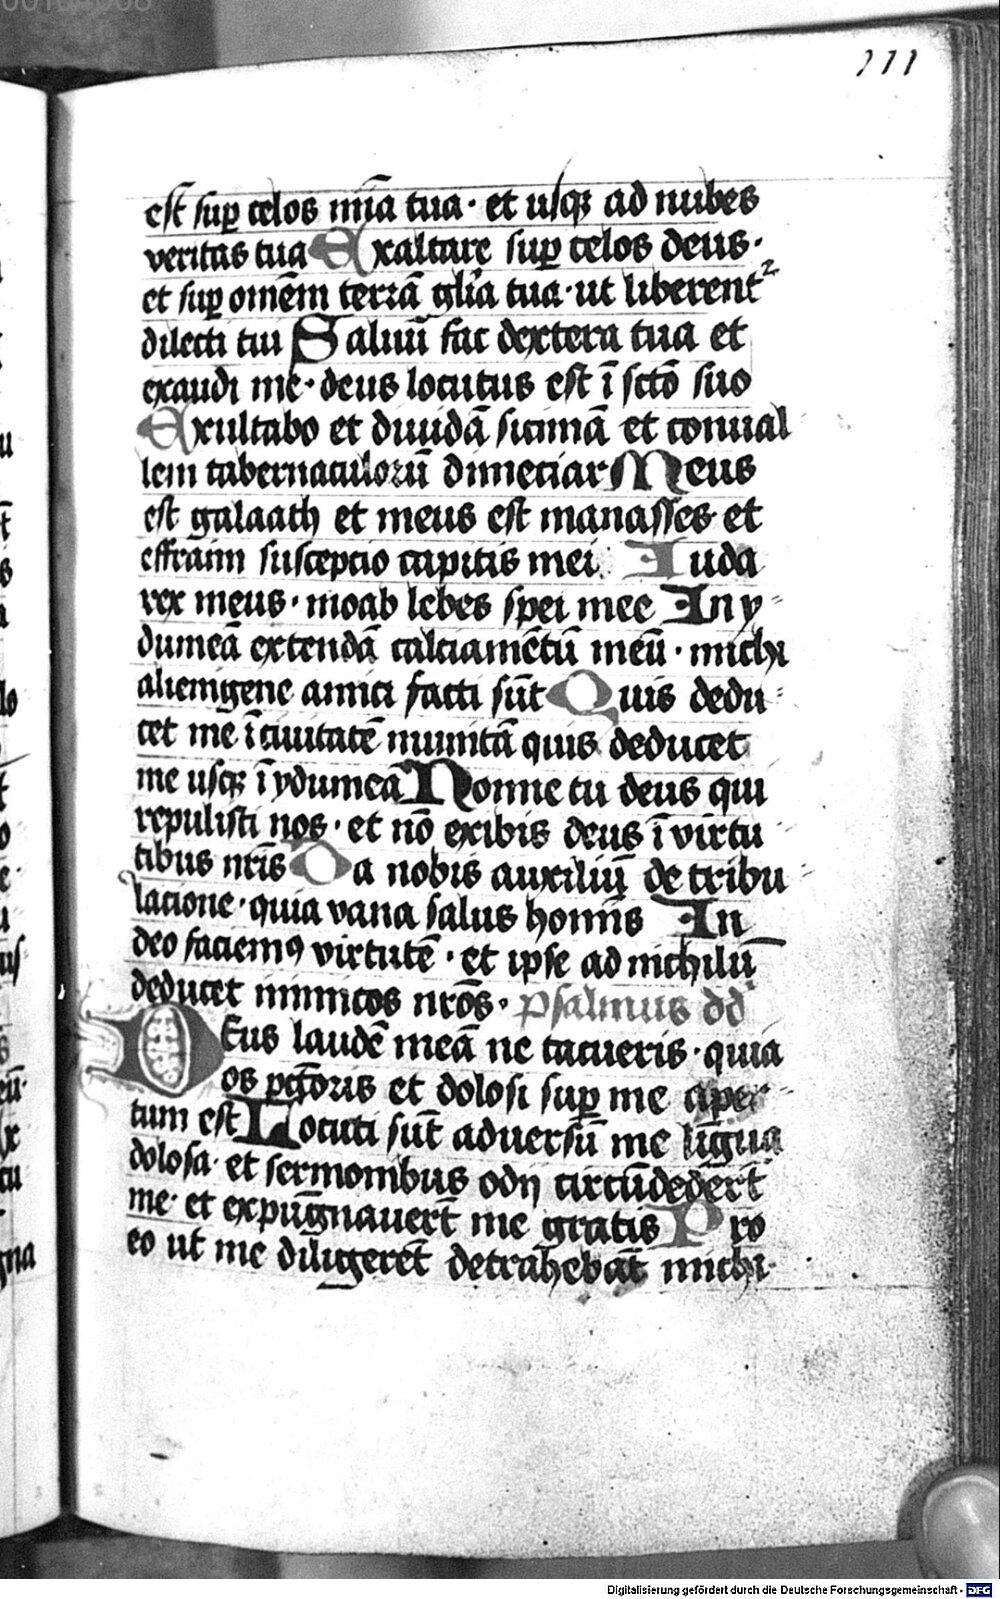 111
est sup celos mia tua · et usq ad nubes
veritas tua Exaltare sup celos deus ·
et sup omem terrā glia tua · ut liberent
dilecti tui Saluū fac dextera tua et
exaudi me · deus locutus est ī sctō suo
Exultabo et diuidā sicimā et conual
lem tabernaculorū dimeciar Meus
est galaath et meus est manasses et
effraim suscepcio capitis mei Iuda
rex meus · moab lebes spei mee In y
dumeā extendā calciamētū meū · michi
alienigene amici facti sūt Quis dedu
cet me ī ciuitatē munitā quis deducet
me usq ī ydumeā Nonne tu deus qui
repulisti nos · et nō exibis deus ī virtu
tibus nris Da nobis auxiliū de tribu
lacione · quia vana salus homis In
deo faciemꝰ virtutē · et ipse ad michilū
deducet inimicos nros · psalmus dd
Deus laudē meā ne tacueris · quia
os pctoris et dolosi sup me aper
tum est Locuti sūt aduersū me ligua
dolosa · et sermonibus odij circūdedert
me · et expūgnauert me gratis Pro
eo ut me diligeret detrahebāt michi ·
Digitalisierung gefördert durch die Deutsche Forschungsgemeinschaft - DFG